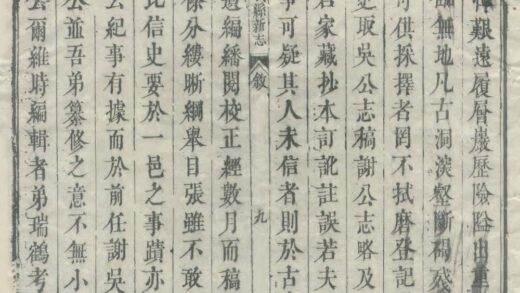 艱遠履層巖歷險隘由重
無地凡古洞深壑斷碣殘
可供採擇者罔不拭磨登記
史取吳公志稿謝公志畧及
家藏抄本訂訛註誤若夫
事可疑其人未信者則於古
縣新志 敘 九
遺編繙閱校正經數月而稿
條分縷晰綱舉目張雖不敢
比信史要於一邑之事蹟亦
公紀事有據而於前任謝吳
公並吾弟纂修之意不無小
爾維時編輯者弟瑞鶴考